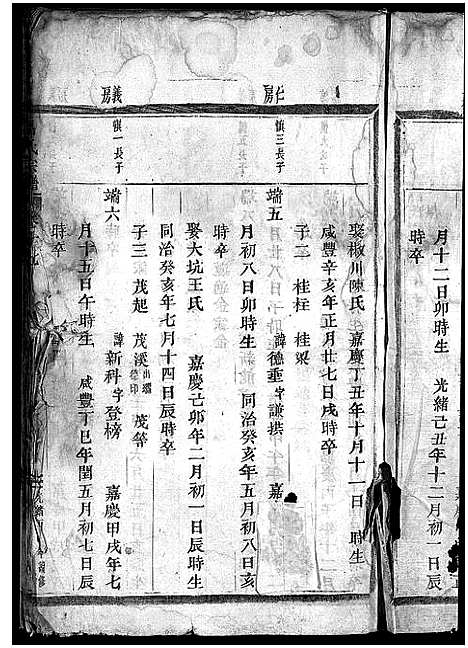 月十二日卯時生　光緒己丑年十二月初一日辰
時卒
娶椒川陳氏　嘉慶丁丑年十月十一日　時生
咸豐辛亥年正月廿七日戌時卒
子二　桂枉　桂梁
仁房
慎三長子
端五　諱德垂字謙拱　嘉
月初八日卯時生　同治癸亥年五月初八日亥
時卒
娶大坑王氏　嘉慶己卯年二月初一日辰時生
同治癸亥年七月十四日辰時卒
子三　茂起　茂溪出嗣　茂等
義房
慎一長子
端六　諱新科字登榜　嘉慶甲戌年七
月十五日午時生　咸豐丁巳年閏五月初七日辰
時卒